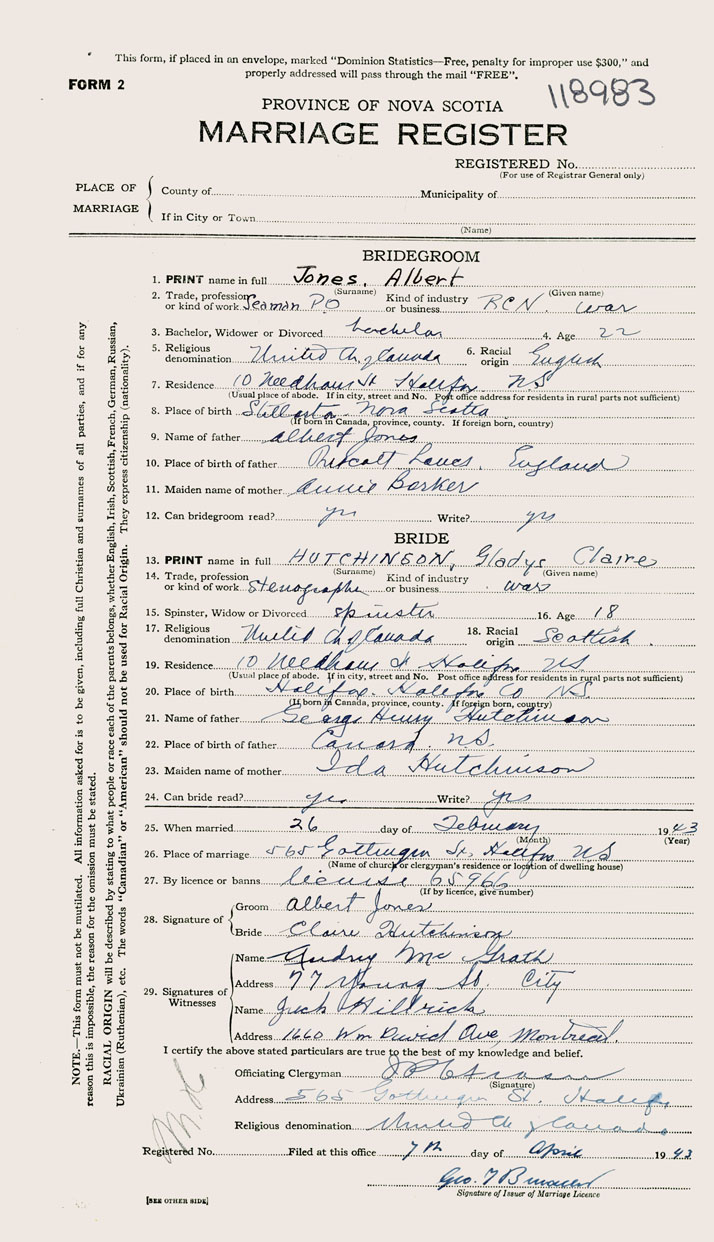 This form, if placed in an envelope, marked "Dominion Statistics—Free, penalty for improper use $300," and
properly addressed will pass through the mail "FREE".
FORM 2
118983
PROVINCE OF NOVA SCOTIA
MARRIAGE REGISTER
REGISTERED No.
(For use of Registrar General only)
PLACE OF MARRIAGE
County of Municipality of
If in City or Town
(Name)
BRIDEGROOM
1. PRINT name in full Jones, Albert
(Surname) (Given name)
2. Trade, profession or kind of work Seaman PO Kind of industry or business RCN. war
3. Bachelor, Widower or Divorced bachelor 4. Age 22
5. Religious denomination United Ch of Canada 6. Racial origin English
7. Residence 10 Needham St Halifax NS
(Usual place of abode. If in city, street and No. Post office address for residents in rural parts not sufficient)
8. Place of birth Nova Scotia
(If born in Canada, province, county. If foreign born, country)
9. Name of father Albert Jones
10. Place of birth of father Lancs. England
11. Maiden name of mother Annie Barker
12. Can bridegroom read? yes Write? yes
BRIDE
13. PRINT name in full HUTCHINSON, Gladys Claire
(Surname) (Given name)
14. Trade, profession or kind of work Stenographer Kind of industry or business war
15. Spinster, Widow or Divorced spinster 16. Age 18
17. Religious denomination United Ch of Canada 18. Racial origin Scottish.
19. Residence 10 Needham St Halifax NS
(Usual place of abode. If in city, street and No. Post office address for residents in rural parts not sufficient)
20. Place of birth Halifax. Halifax Co NS.
(If born in Canada, province, county. If foreign born, country)
21. Name of father George Henry Hutchinson
22. Place of birth of father Canard. N.S.
23. Maiden name of mother Ida Hutchinson
24. Can bride read? yes Write? yes
25. When married 26 day of February 1943
(Month) (Year)
26. Place of marriage 565 Gottingen St, Halifax NS
(Name of church or clergyman's residence or location of dwelling house)
27. By licence or banns license 65966
(If by licence, give number)
28. Signature of
Groom Albert Jones
Bride Claire Hutchinson
29. Signatures of Witnesses
Name Audrey McGrath
Address 77 Young St. City
Name Jack Hillrich
Address 1660 Wm David Ave, Montreal.
I certify the above stated particulars are true to the best of my knowledge and belief.
Officiating Clergyman
(Signature)
Address 565 Gottingen St. Halifax
Religious denomination United Ch of Canada
Registered No. Filed at this office 7th day of April 1943
Geo. T
Signature of Issuer of Marriage Licence
[SEE OTHER SIDE]
NOTE.—This form must not be mutilated. All information asked for is to be given, including full Christian and surnames of all parties, and if for any
reason this is impossible, the reason for the omission must be stated.
RACIAL ORIGIN will be described by stating to what people or race each of the parents belongs, whether English, Irish, Scottish, French, German, Russian,
Ukrainian (Ruthenian), etc. The words "Canadian" or "American" should not be used for Racial Origin. They express citizenship (nationality).